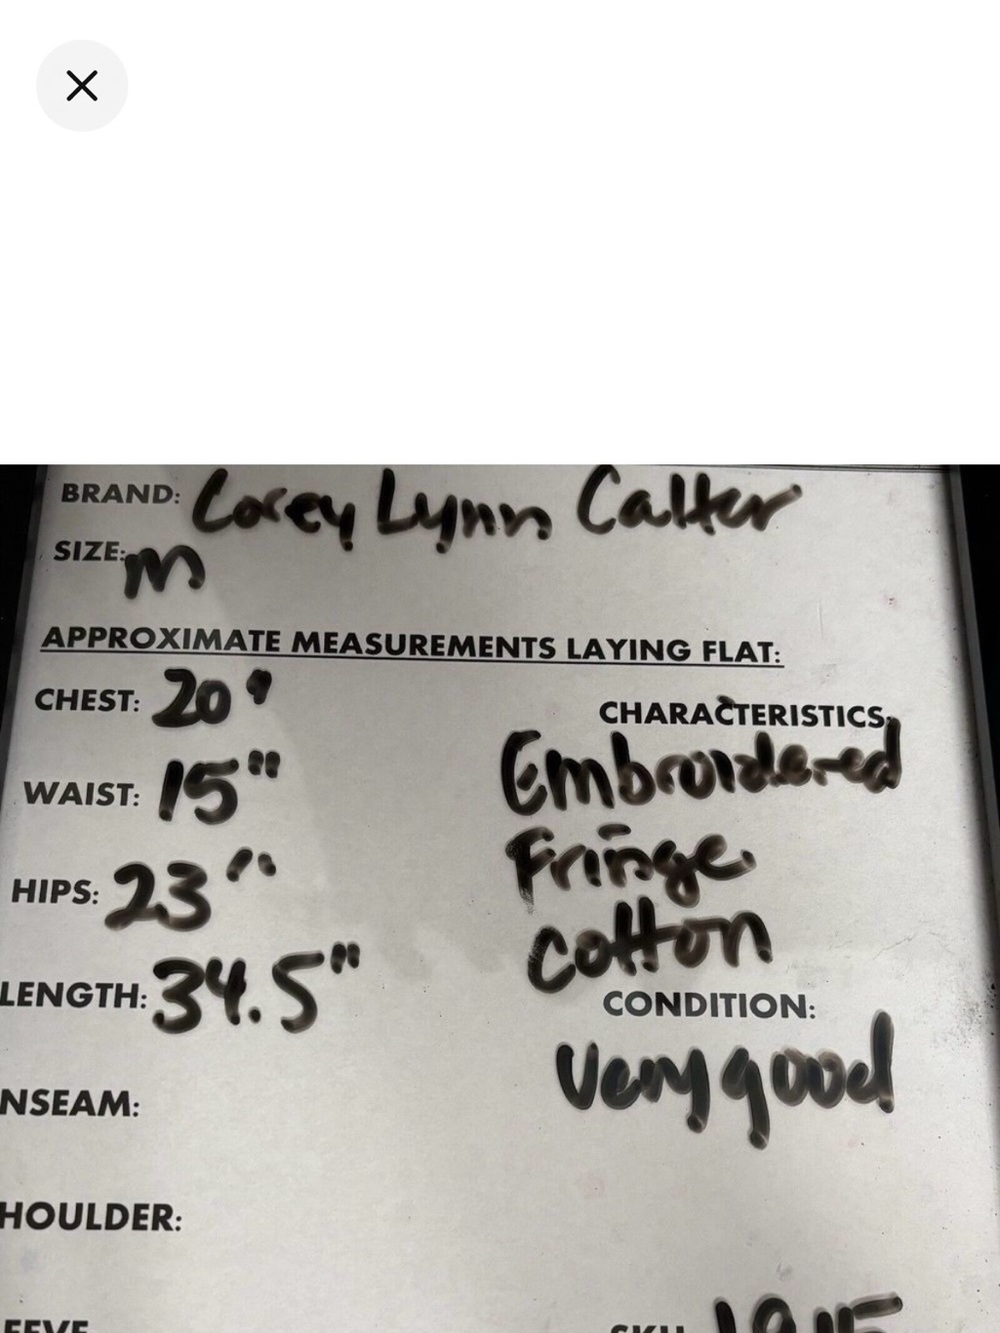 BRAND: Corey Lynn Calter
SIZE: M
APPROXIMATE MEASUREMENTS LAYING FLAT:
CHEST: 20"
CHARACTERISTICS:
WAIST: 15"
Embroidered
Fringe
HIPS: 23"
Cotton
LENGTH: 34.5"
CONDITION:
Very good
NSEAM:
HOULDER: